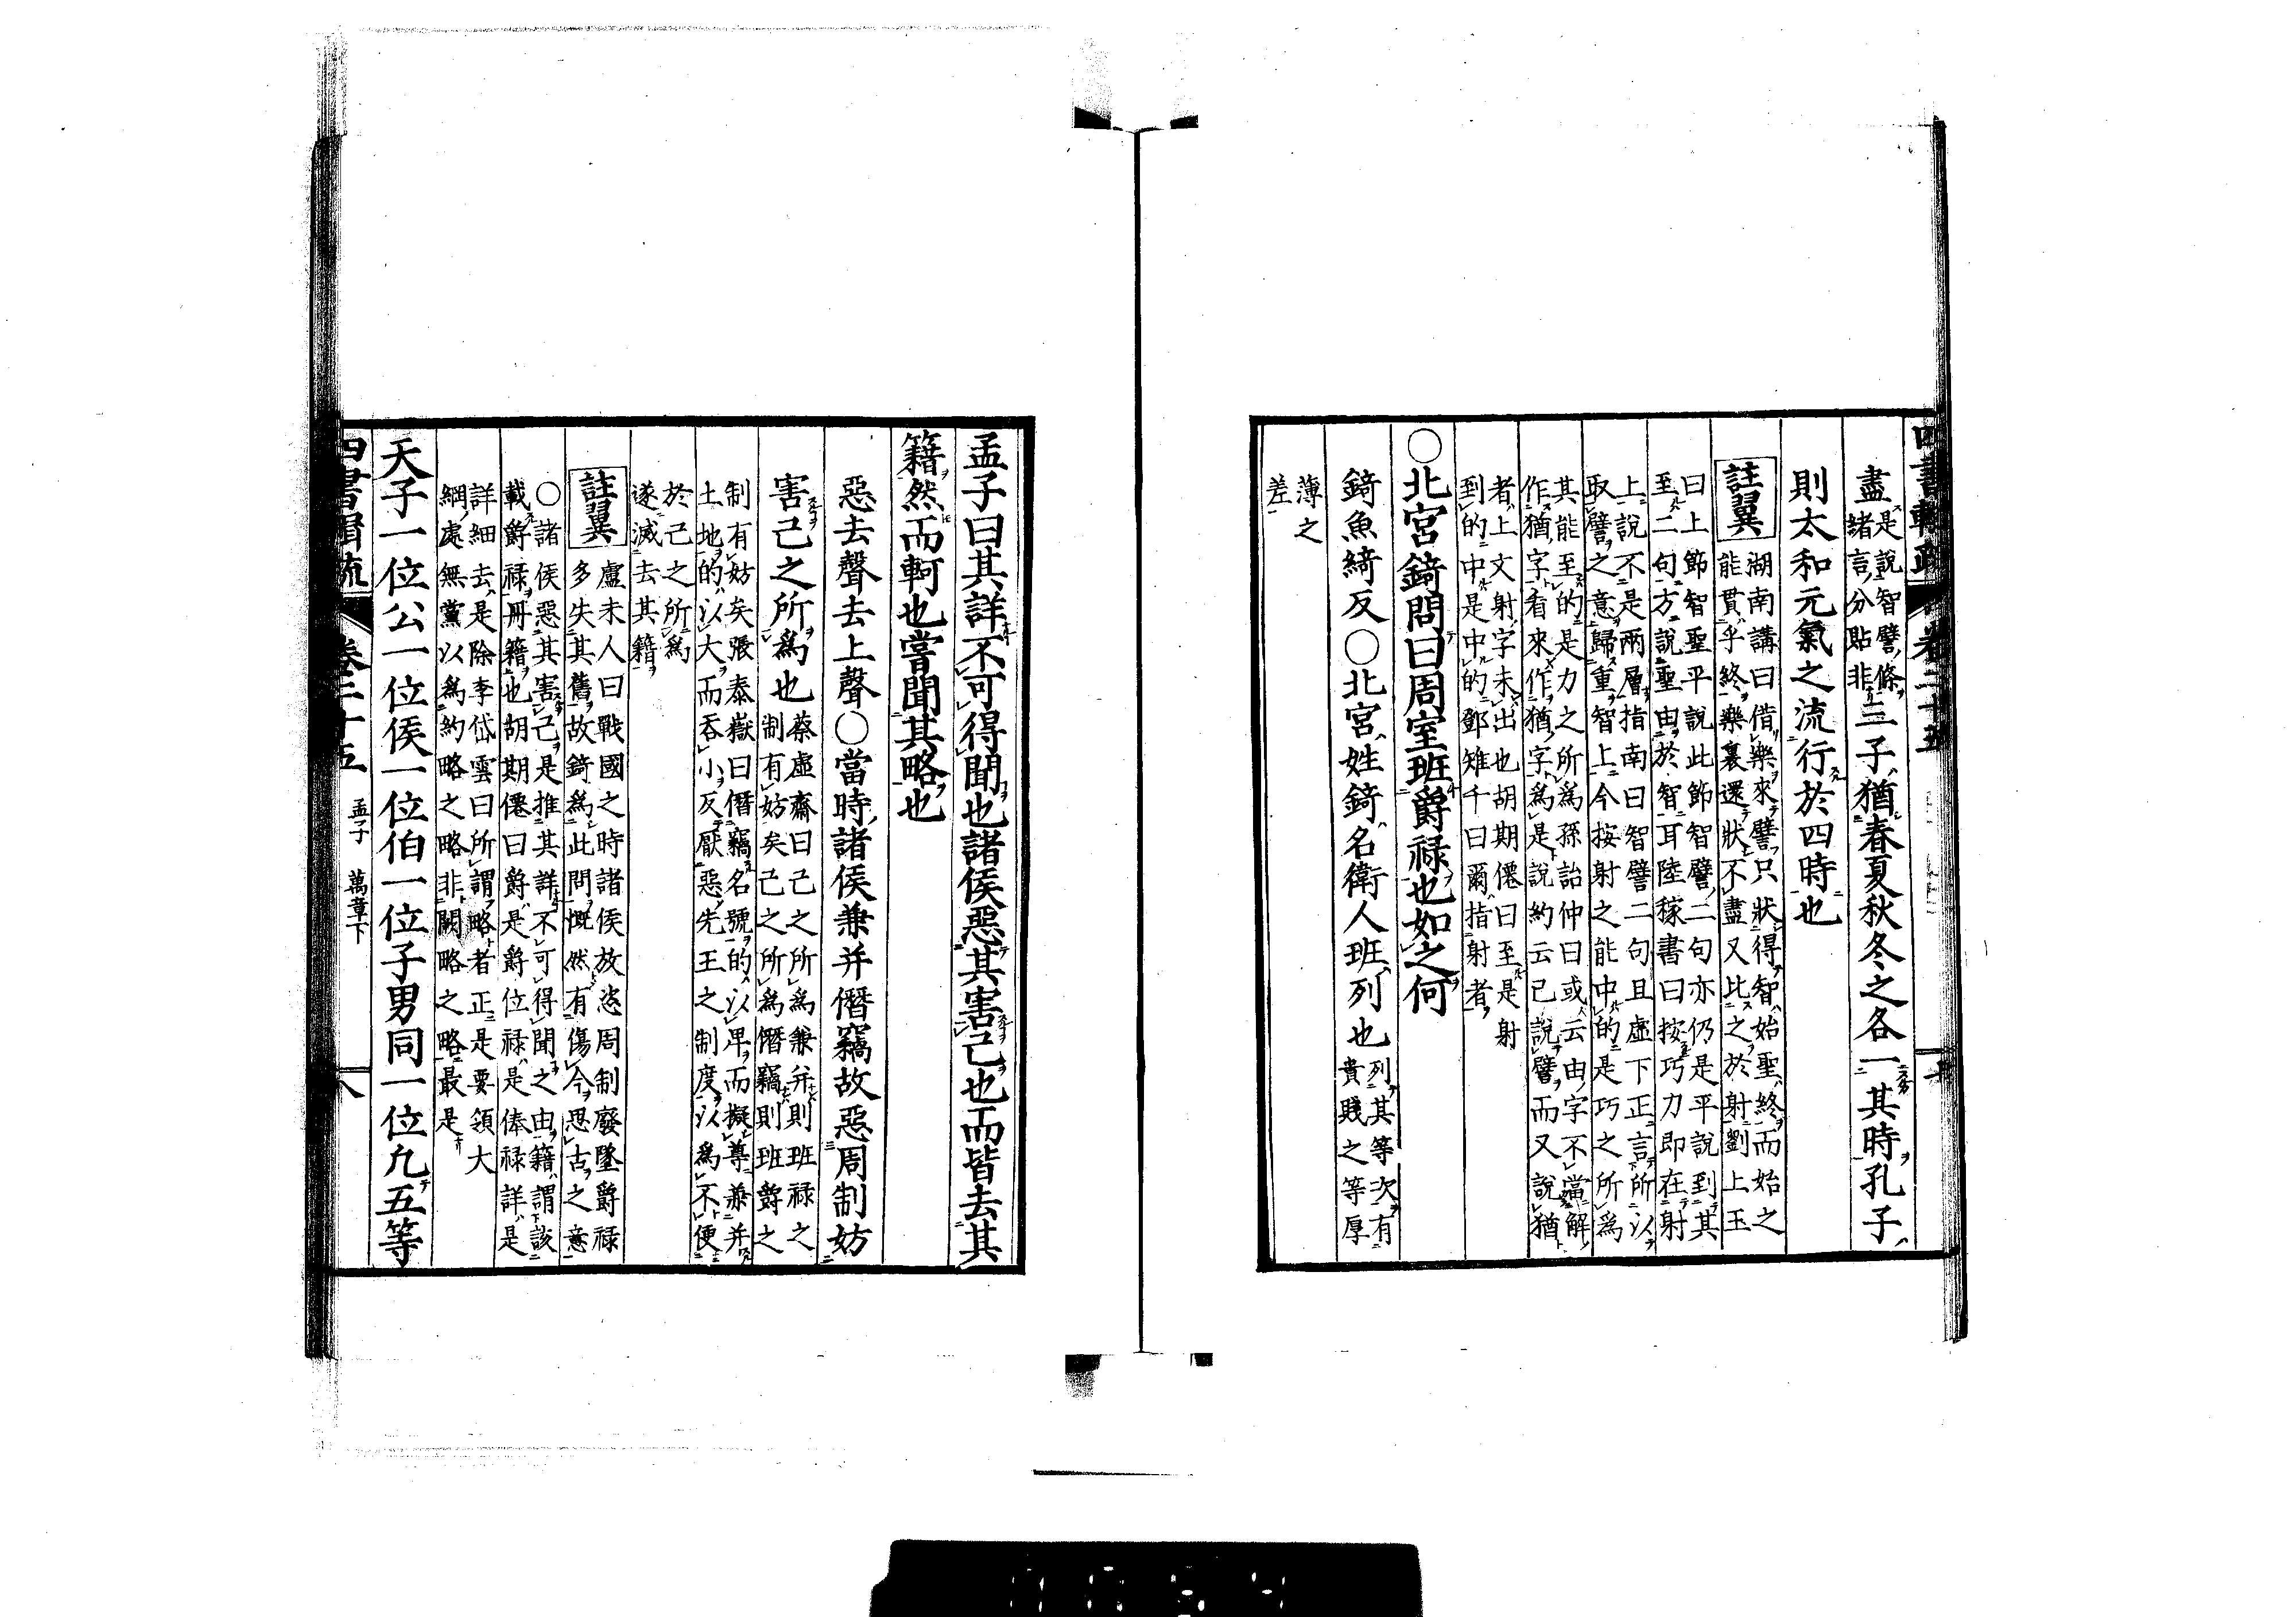 盡是說智譬條
緒言分貼非三子猶春夏秋冬之各一其時孔子
則太和元氣之流行於四時也
註翼
湖南講曰借樂來譬只狀得智始聖終而始之
能貫乎終樂裏還狀不盡又比之於射劉上玉
曰上節智聖平說此節智譬二句亦仍是平說到其
至二句方說聖由於智耳陸稼書曰按巧力即在射
上說不是兩層指南曰智譬二句且虛下正言所以
取譬之意歸重智上今按射之能中的是巧之所爲
其能至的是力之所爲孫詒仲曰或云由字不當解
作猶字看來作猶字爲是說約云已說譬而又說猶
者上文射字未出也胡期僊曰至是射
到的中是中的鄧雉千曰爾指射者
○北宮錡問曰周室班爵祿也如之何
錡魚綺反○北宮姓錡名衛人班列也列其等次有
貴賤之等厚
薄之
差
孟子曰其詳不可得聞也諸侯惡其害己也而皆去其
籍然而軻也嘗聞其略也
惡去聲去上聲○當時諸侯兼并僭竊故惡周制妨
害己之所爲也蔡虛齋曰己之所爲兼并則班祿之
制有妨矣己之所爲僭竊則班爵之
制有妨矣張泰嶽曰僭竊名號的以卑而擬尊兼并
土地的以大而吞小反厭惡先王之制度以爲不便
於己之所爲
遂滅去其籍
註翼
盧未人曰戰國之時諸侯放恣周制廢墜爵祿
多失其舊故錡爲此問慨然有傷今思古之意
○諸侯惡其害己是推其詳不可得聞之由籍謂該
載爵祿冊籍也胡期僊曰爵是爵位祿是俸祿詳是
詳細去是除李岱雲曰所謂略者正是要領大
綱處無黨以爲約略之略非闕略之略最是
天子一位公一位侯一位伯一位子男同一位凡五等
四書輯疏
卷二十五
孟子 萬章下
八